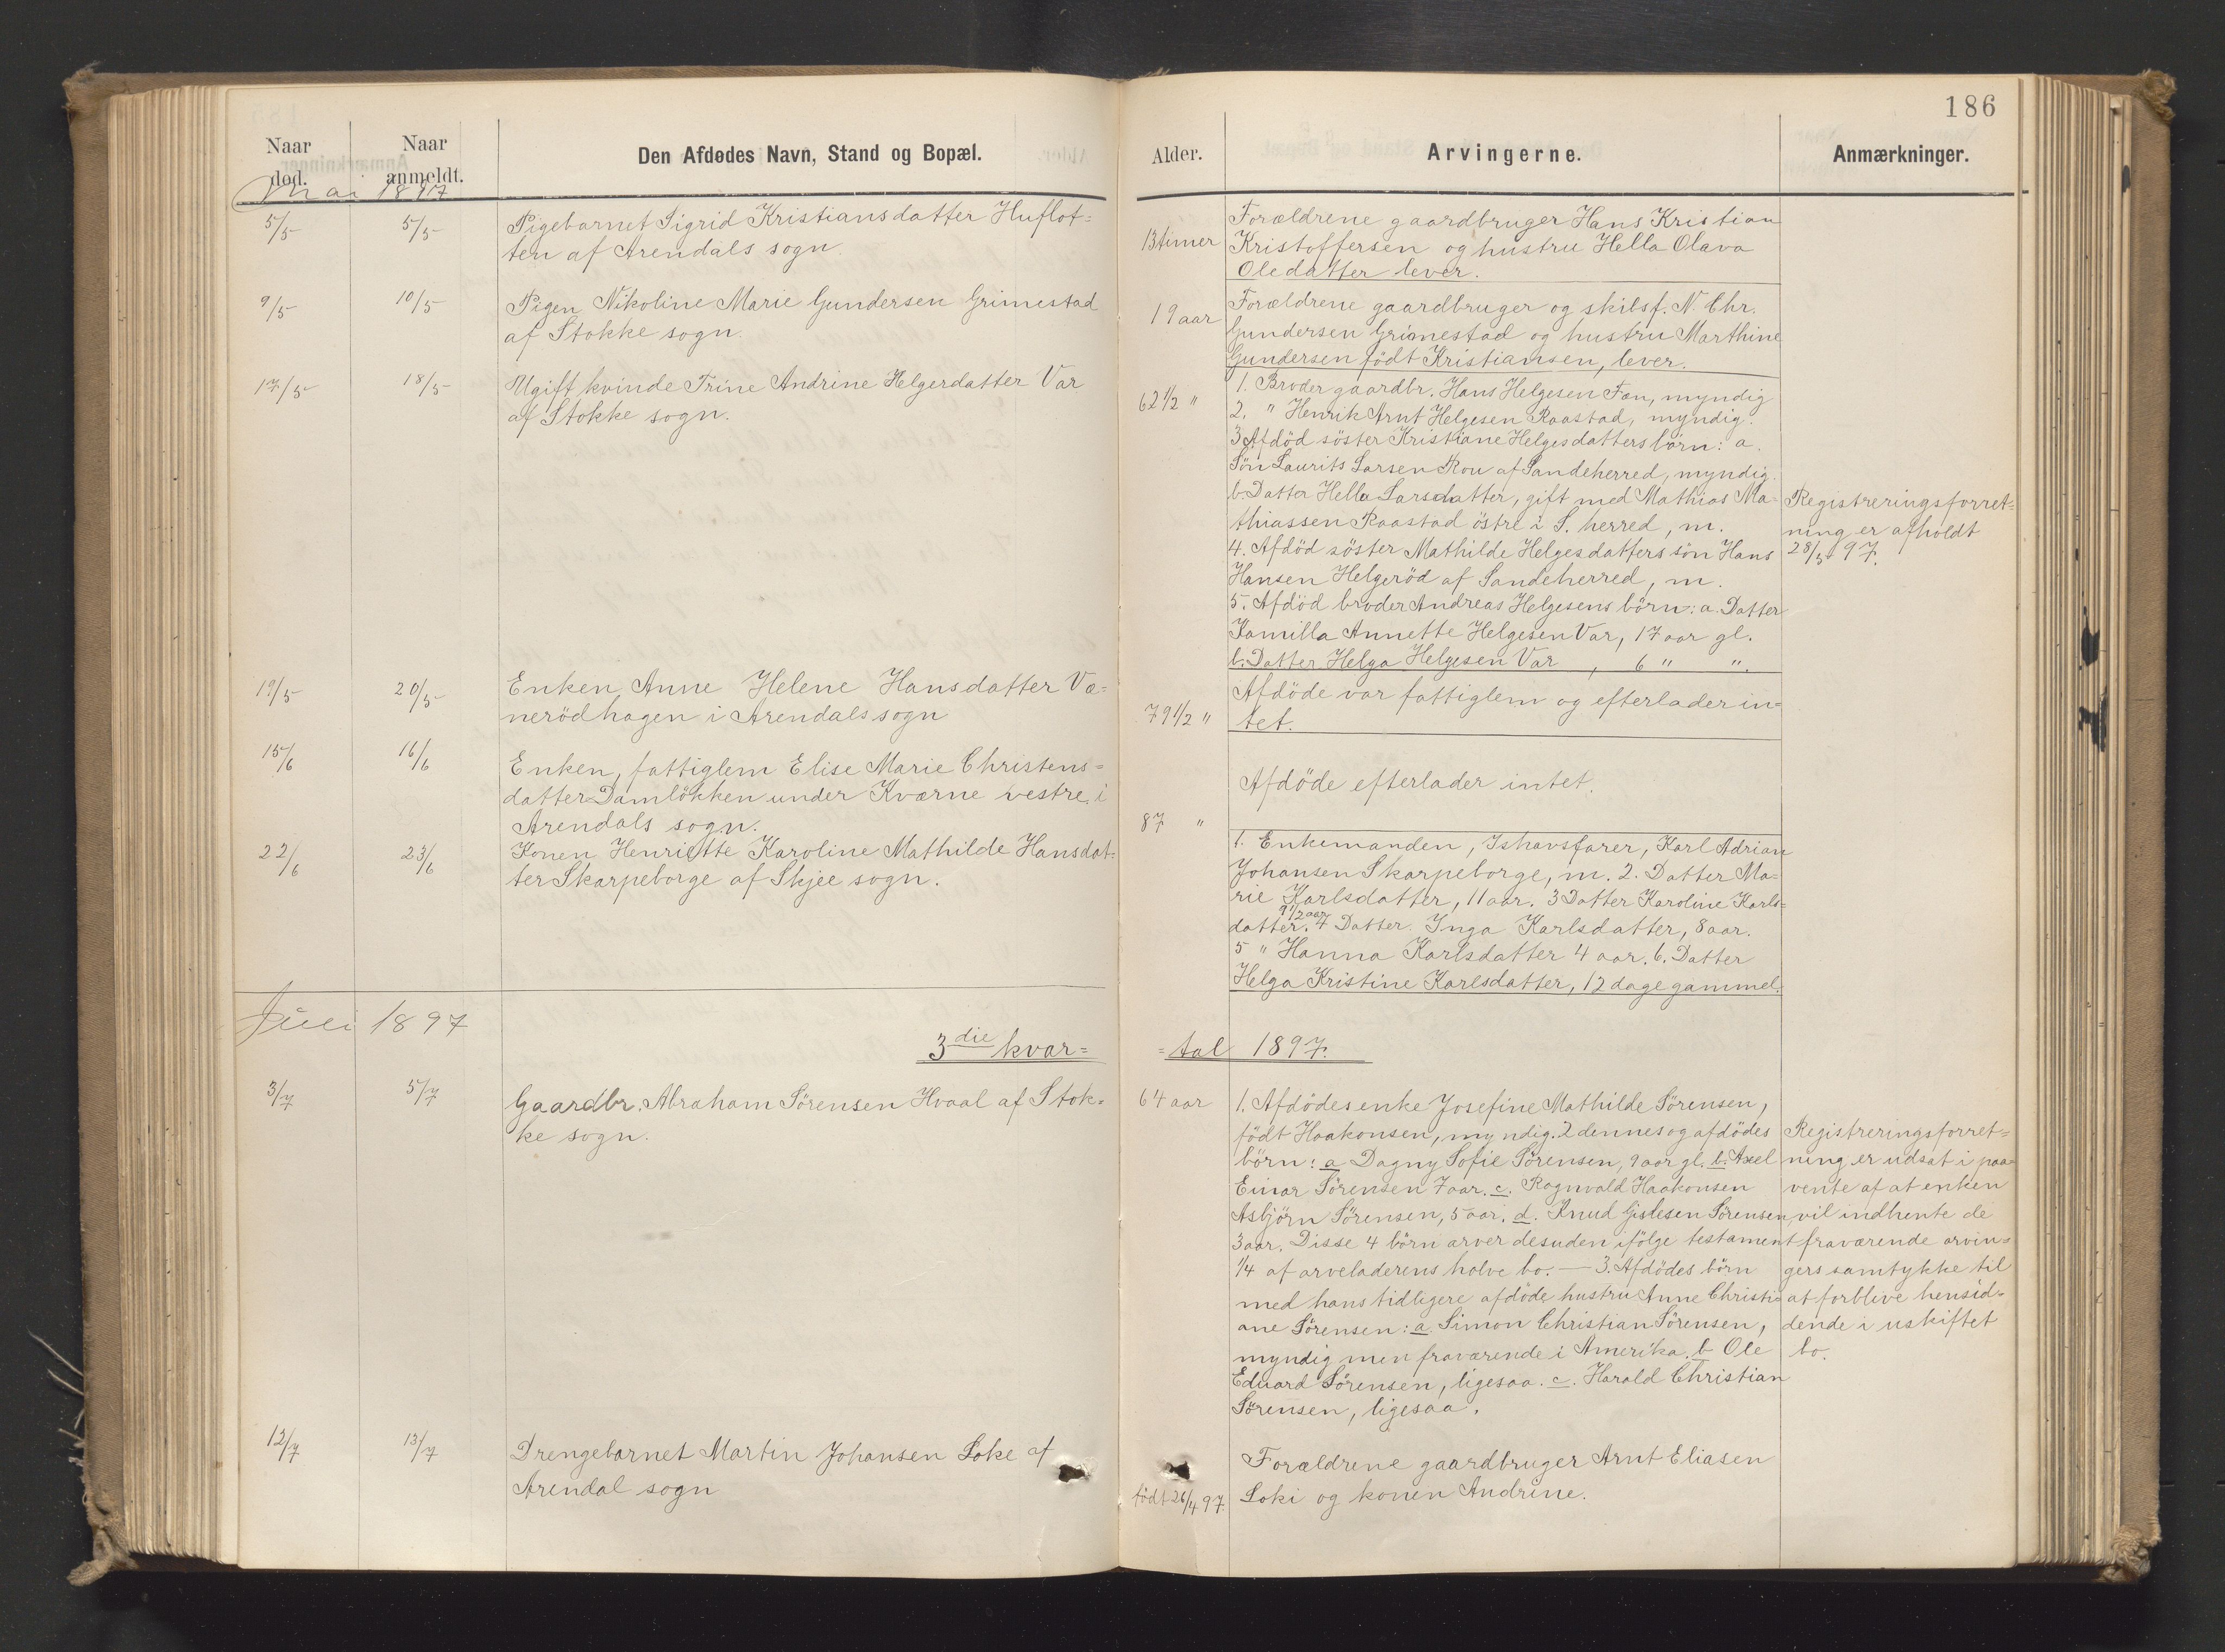 186
Naar død.
Naar anmeldt.
Den Afdødes Navn, Stand og Bopæl.
Alder.
Arvingerne.
Anmærkninger.
Mai 1897
5/5 5/5 Pigebarnet Sigrid Kristiansdatter Huflot=
ten af Arendals sogn.
13 timer
Forældrene gaardbruger Hans Kristian
Kristoffersen og hustru Hella Olava
Oledatter lever.
9/5 10/5 Pigen Nikoline Marie Gundersen Grimestad
af Stokke sogn.
19 aar
Forældrene gaardbruger og skibsf. N. Chr.
Gundersen Grimestad og hustru Marthine
Gundersen født Kristiansen, lever.
17/5 18/5 Ugift kvinde Trine Andrine Helgerdatter Var
af Stokke sogn.
62 1/2 "
1. Broder gaardbr. Hans Helgesen Fan, myndig
2. " Henrik Arnt Helgesen Raastad, myndig.
3 Afdöd söster Kristiane Helgesdatters börn: a.
Sön Laurits Larsen Rou af Sandeherred, myndig.
b. Datter Hella Larsdatter, gift med Mathias Ma=
thiassen Raastad östre i S. herred, m.
4. Afdöd söster Mathilde Helgesdatters sön Hans
Hansen Helgeröd af Sandeherred, m.
5. Afdöd broder Andreas Helgesens börn: a. Datter
Kamilla Annette Helgesen Var, 17 aar gl.
b. Datter Helga Helgesen Var, 6 " ".
Registreringsforret=
ning er afholdt
28/5 97.
19/5 20/5 Enken Anne Helene Hansdatter Væ=
nerödhagen i Arendals sogn
79 1/2 "
Afdöde var fattiglem og efterlader in=
tet.
15/6 16/6 Enken, fattiglem Elise Marie Christens=
datter Damlökken under Kværne vestre i
Arendals sogn.
87 "
Afdöde efterlader intet.
22/6 23/6 Konen Henriette Karoline Mathilde Hansdat=
ter Skarpeborge af Skjee sogn.
1. Enkemanden, Ishavsfarer, Karl Adrian
Johansen Skarpeborge, m. 2. Datter Ma=
rie Karlsdatter, 11 aar. 3 Datter Karoline Karls=
datter. 9 1/2 aar 4 Datter. Inga Karlsdatter, 8 aar.
5 " Hanna Karlsdatter 4 aar. 6. Datter
Helga Kristine Karlsdatter, 12 dage gammel.
Juli 1897
3die kvar=
=tal 1897.
3/7 5/7 Gaardbr. Abraham Sörensen Hvaal af Stok=
ke sogn.
64 aar
1. Afdödes enke Josefine Mathilde Sörensen,
födt Haakonsen, myndig. 2 dennes og afdödes
börn: a Dagny Sofie Sörensen, 9 aar gl. b. Axel
Einar Sörensen 7 aar. c. Ragnvald Haakonsen
Asbjörn Sörensen, 5 aar. d. Knud Gislesen Sörensen
3 aar. Disse 4 börn arver desuden ifölge testament
1/4 af arveladerens halve bo. — 3. Afdödes börn
med hans tidligere afdöde hustru Anne Christi=
ane Sörensen: a. Simon Christian Sörensen,
myndig men fraværende i Amerika. b Ole
Eduard Sörensen, ligesaa. c. Harald Christian
Sörensen, ligesaa.
Registreringsforret=
ning er udsat i paa=
vente af at enken
vil indhente de
fraværende arvin=
gers samtykke til
at forblive hensid=
dende i uskiftet
bo.
12/7 13/7 Drengebarnet Martin Johansen Loke af
Arendal sogn
födt 26/4 97.
Forældrene gaardbruger Arnt Eliasen
Loki og konen Andrine.